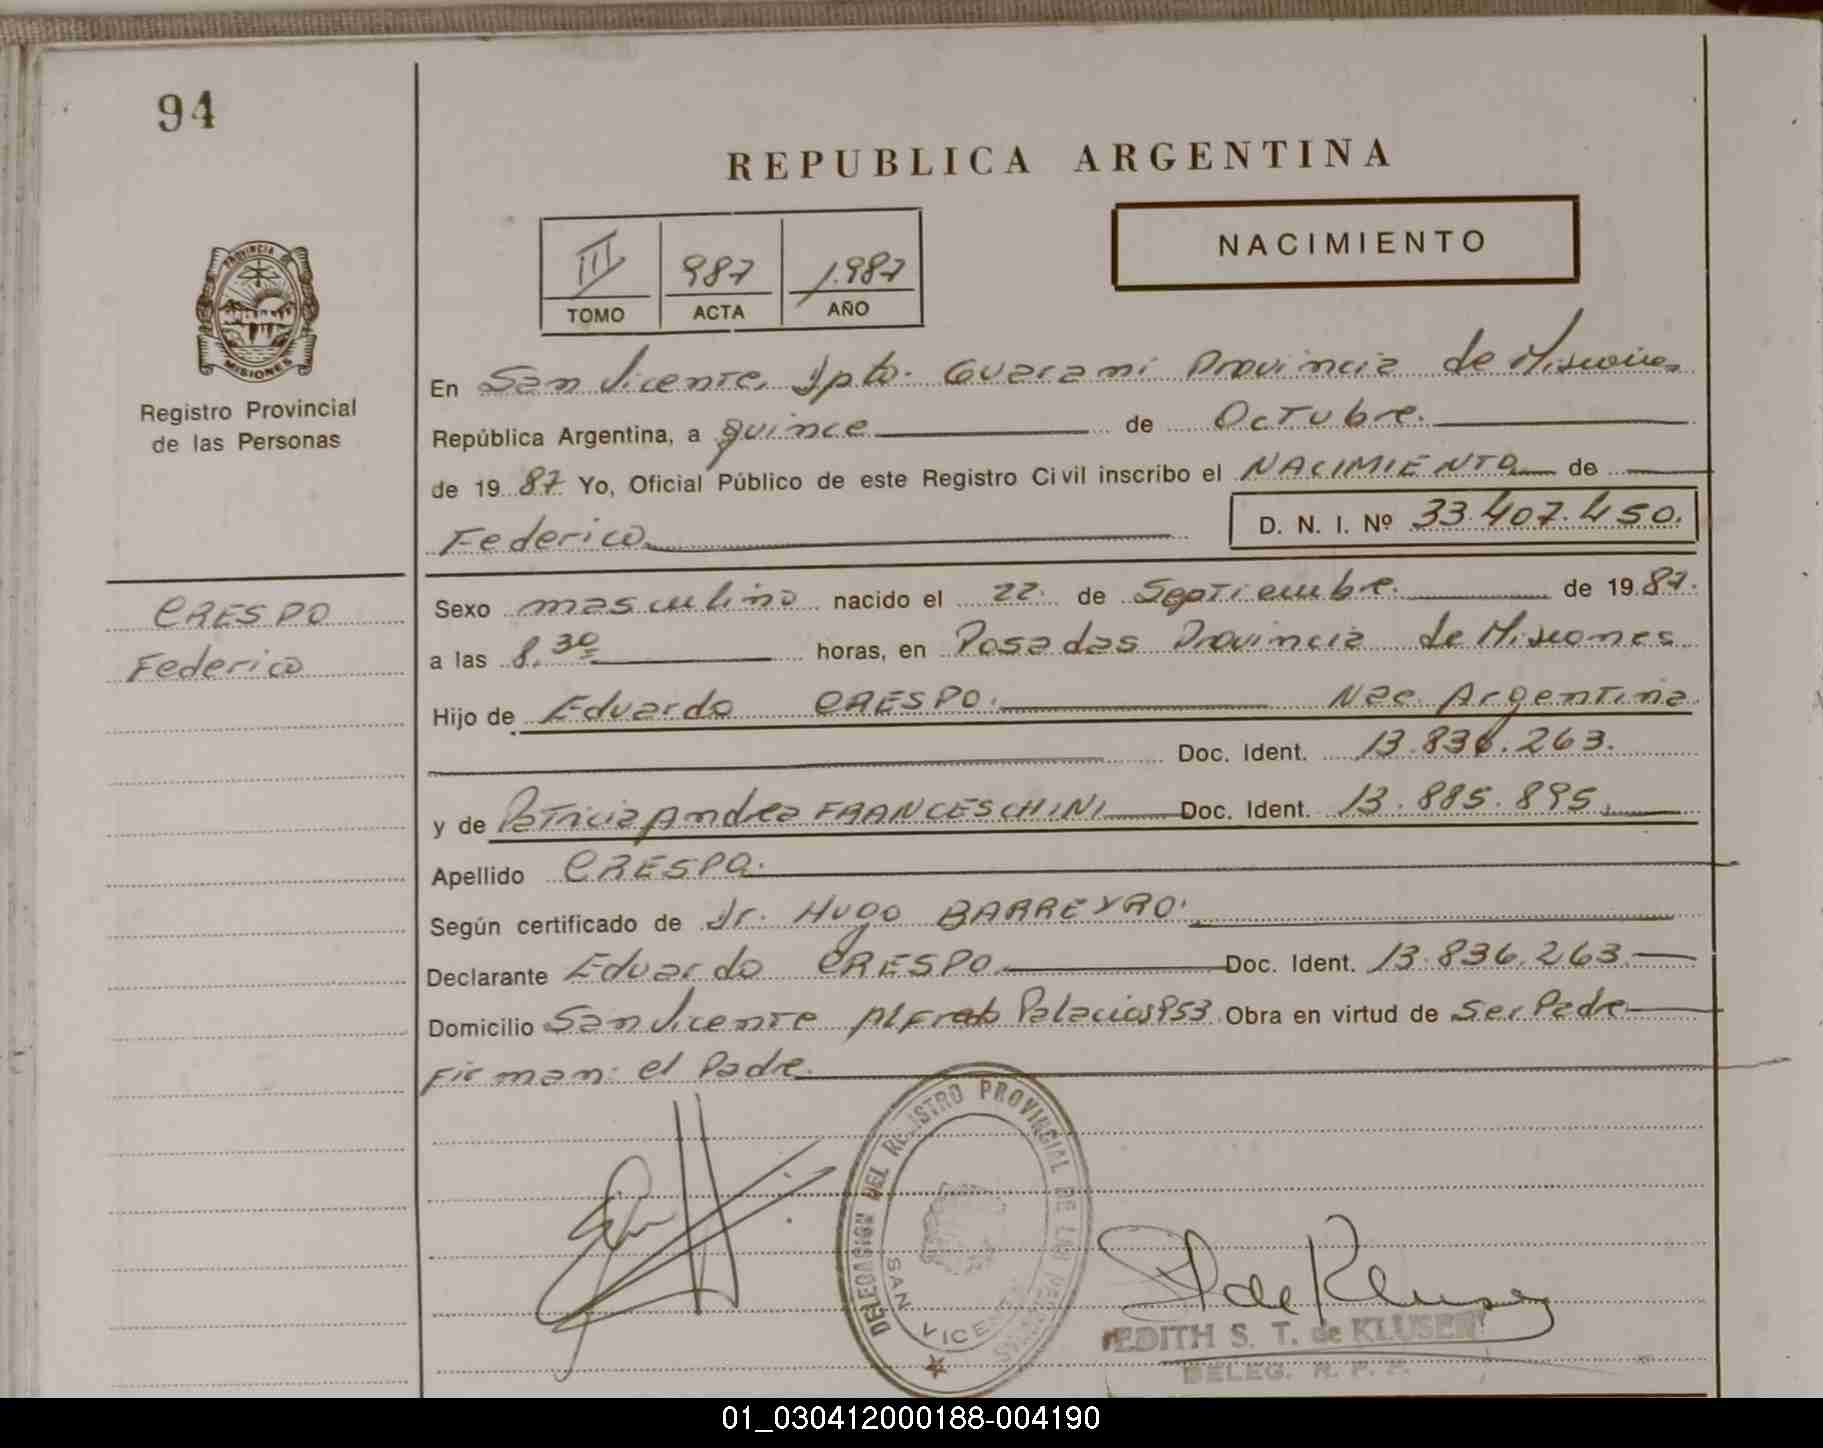 94
REPUBLICA ARGENTINA
NACIMIENTO
III 987 1.987
TOMO ACTA AÑO
PROVINCIA DE
MISIONES
Registro Provincial
de las Personas
En San Vicente, Dpto. Guarani Provincia de Misiones
República Argentina, a quince de Octubre.
de 19 87 Yo, Oficial Público de este Registro Civil inscribo el NACIMIENTO de
Federico D. N. I. Nº 33.407.450.
CRESPO
Federico
Sexo masculino nacido el 22. de Septiembre. de 19 87.
a las 8.30 horas, en Posadas Provincia de Misiones
Hijo de Eduardo CRESPO. Nac. Argentina
Doc. Ident. 13.836.263.
y de Patricia Andrea FRANCESCHINI Doc. Ident. 13.885.895.
Apellido CRESPO.
Según certificado de Dr. Hugo BARREYRO.
Declarante Eduardo CRESPO. Doc. Ident. 13.836.263.
Domicilio San Vicente Alfredo Palacios 953 Obra en virtud de Ser Padre
Firman: el Padre.
DELEGACION DEL REGISTRO PROVINCIAL DE LAS PERSONAS
SAN VICENTE
EDITH S. T. de KLUSENER
DELEG. R. P. P.
01_030412000188-004190